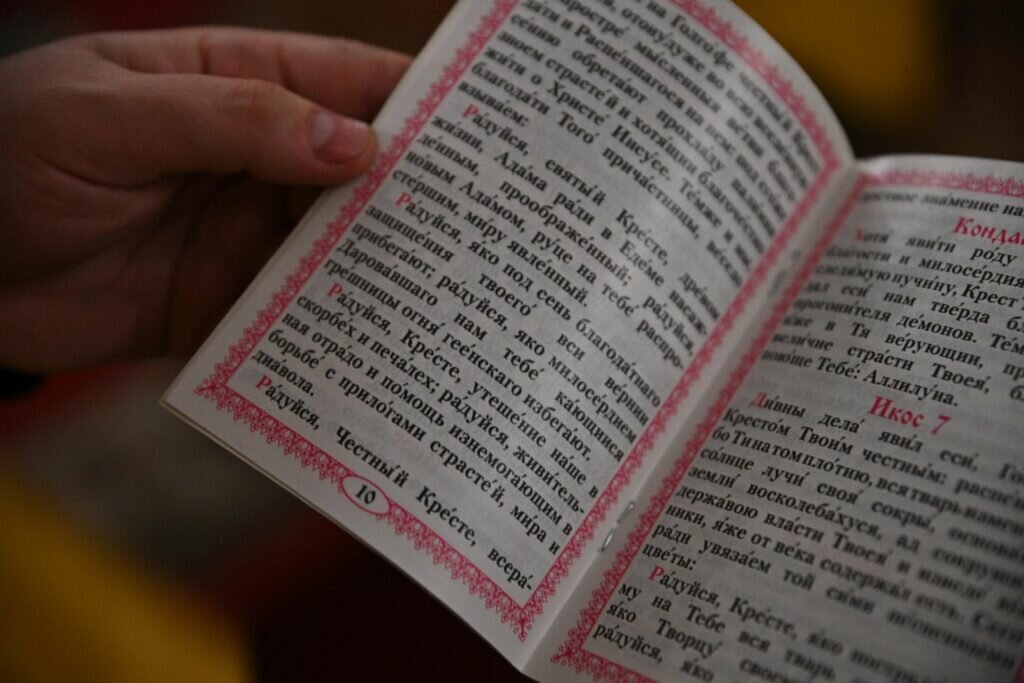 на Голгофе честны́й
отону́дуже во всю вселе́нную
простре́ мы́сленныя ве́тви благ-
да́ти и Распе́ншагося на нем: под се́нию
се́нию обрета́ют прохла́ду па́лимии
зно́ем страсте́й и хотя́щии благоче́стно
жи́ти о Христе́ Иису́се. Те́мже и мы,
благода́ти Того́ прича́стницы, ве́село
взыва́ем:
Ра́дуйся, святы́й Кре́сте, дре́вом
жи́зни, Ада́ма ра́ди в Еде́ме насаж-
де́нным, прообра́женный; ра́дуйся,
но́вым Ада́мом, ру́це на тебе́ распро-
сте́ршим, ми́ру явле́нный.
Ра́дуйся, я́ко под сень благода́тнаго
защище́ния твоего́ вси ве́рнии
прибега́ют; ра́дуйся, я́ко милосе́рдием
Дарова́вшаго нам тебе́ ка́ющиися
гре́шницы огня́ гее́нскаго избега́ют.
Ра́дуйся, Кре́сте, утеше́ние на́ше в
ско́рбех и печа́лех; ра́дуйся, живи́тель-
ная отра́до и по́мощь изнемога́ющим в
борьбе́ с прило́гами страсте́й, ми́ра и
диа́вола.
Ра́дуйся, Честны́й Кре́сте, всера́-
10
кре́стное зна́мение на
Конда́к
Хотя́ яви́ти ро́ду
бла́гости и милосе́рдия
сле́димую пучи́ну, Крест
дал еси́ нам тве́рда
прогони́теля де́монов. Те́м
же в Тя ве́рующии,
вели́чие стра́сти Твоея́,
вою́ще Тебе́: Аллилу́иа.
Икос 7
Ди́вны дела́ яви́л еси́,
Кресто́м Твои́м честны́м: распе́
бо Ти на том пло́тию, вся тварь
со́лнце лучи́ своя́ сокры́,
земли́ восколеба́хуся, ад сокруши́
держа́вою вла́сти Твоея́ и изведе́
ники, я́же от ве́ка содержа́л есть.
ра́ди увяза́ем той си́ми песненными
цве́ты:
Ра́дуйся, Кре́сте, я́ко
му на Тебе вся тварь
я́ко Творцу́ своему́
ра́дуйся, я́ко